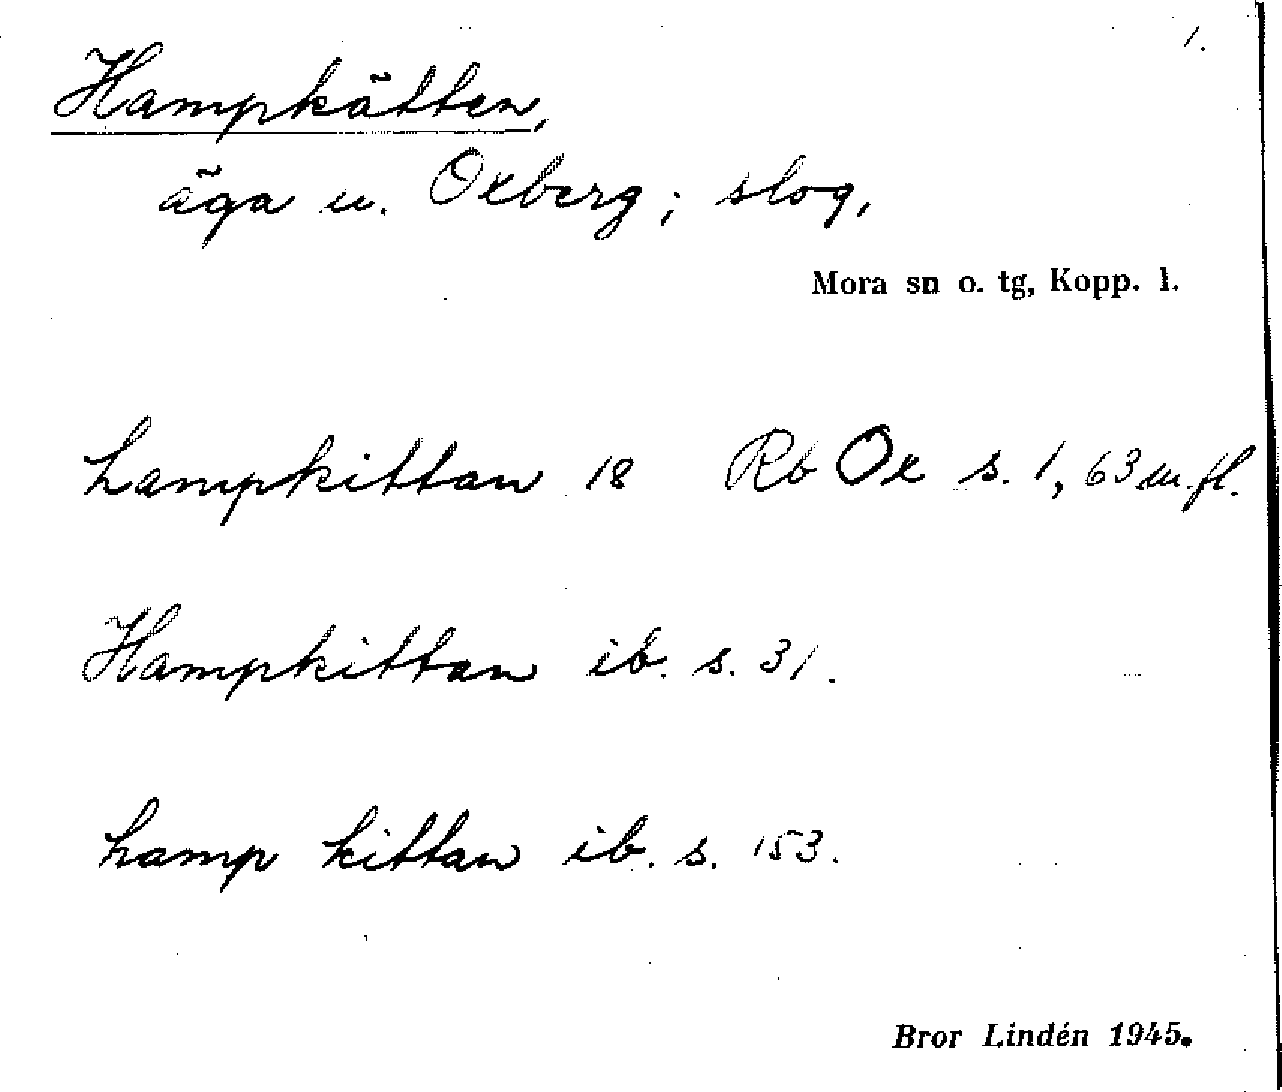 1.
Hampkätten,
äga u. Oxberg; slog,
Mora sn o. tg, Kopp. l.
hampkittan 18 Rb Ox s. 1, 63 m.fl.
Hampkittan ib. s. 31.
hamp kittan ib. s. 153.
Bror Lindén 1945.